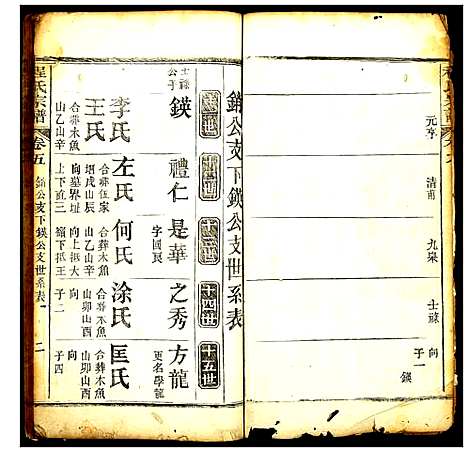 元亨
清甫
九渠
士祿
向
子一
鍈
銷公支下鍈公支世系表
十一世
十二世
十三世
十四世
十五世
士祿公子
鍈
禮仁
是華
字國良
之秀
方龍
更名學龍
李氏
左氏
何氏
涂氏
匡氏
王氏
合葬木魚山乙山辛
合葬伍家
合葬木魚山乙山辛
合葬木魚山卯山酉
合葬木魚山卯山酉
向
子二
向
子四
程氏宗譜
卷五
銷公支下鍈公支世系表
二